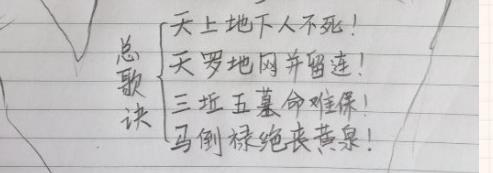 总歌诀
天上地下人不死！
天罗地网并留连！
三坵五墓命难保！
马倒禄绝丧黄泉！